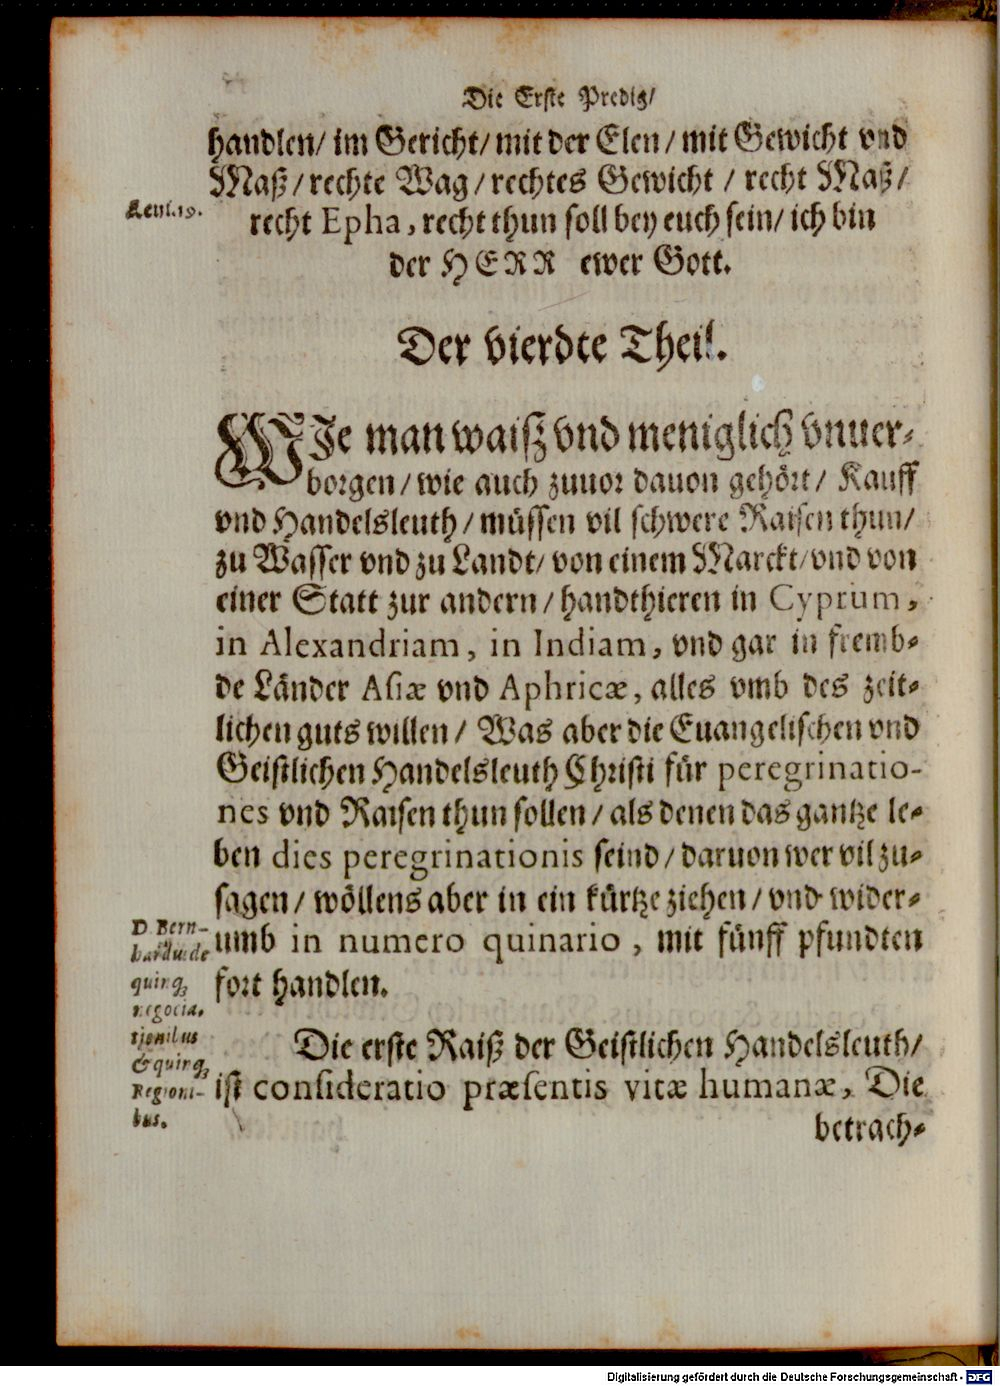 Die Erste Predig/
handlen/ im Gericht/ mit der Elen/ mit Gewicht vnd
Maß/ rechte Wag/ rechtes Gewicht / recht Maß/
Leui.19.
recht Epha, recht thun soll bey euch sein/ ich bin
der HERR ewer Gott.
Der vierdte Theil.
WIe man waiß vnd meniglich vnuer-
borgen/ wie auch zuuor dauon gehört/ Kauff
vnd Handelsleuth/ müssen vil schwere Raisen thun/
zu Wasser vnd zu Landt/ von einem Marckt/ vnd von
einer Statt zur andern/ handthieren in Cyprum,
in Alexandriam, in Indiam, vnd gar in fremb-
de Länder Asiæ vnd Aphricæ, alles vmb des zeit-
lichen guts willen/ Was aber die Euangelischen vnd
Geistlichen Handelsleuth Christi für peregrinatio-
nes vnd Raisen thun sollen/ als denen das gantze le-
ben dies peregrinationis seind/ daruon wer vil zu-
sagen/ wöllens aber in ein kürtze ziehen/ vnd wider-
umb in numero quinario, mit fünff pfundten
fort handlen.
D. Bern-
hardu. de
quinq;
negocia-
tionibus
& quinq;
Regioni-
bus.
Die erste Raiß der Geistlichen Handelsleuth/
ist consideratio præsentis vitæ humanæ, Die
betrach-
Digitalisierung gefördert durch die Deutsche Forschungsgemeinschaft - DFG